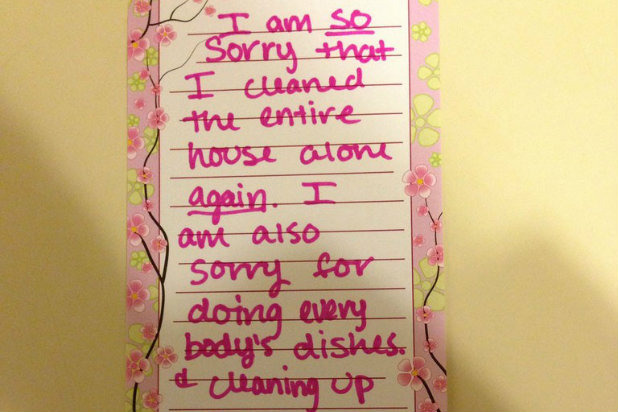 I am so
Sorry that
I cleaned
the entire
house alone
again. I
am also
sorry for
doing every
body's dishes.
& cleaning up